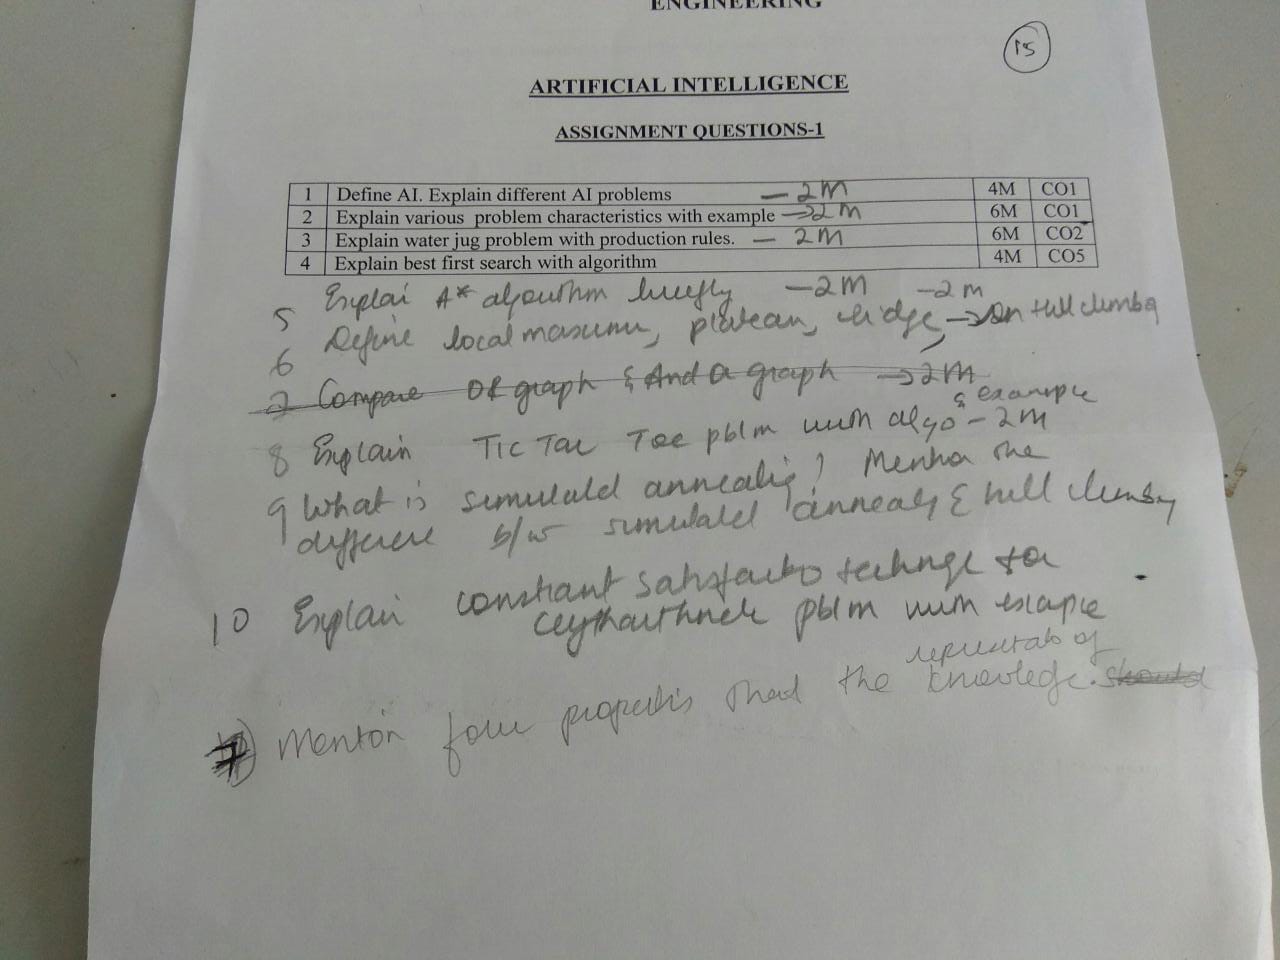 ENGINEERING
15
ARTIFICIAL INTELLIGENCE
ASSIGNMENT QUESTIONS-1
1 Define AI. Explain different AI problems — 2M 4M CO1
2 Explain various problem characteristics with example → 2M 6M CO1
3 Explain water jug problem with production rules. — 2M 6M CO2
4 Explain best first search with algorithm 4M CO5
5 Explai A* algorithm briefly — 2M — 2M
6 Define local maximum, plateau, ridge → in hill climbing
7 Compare OR graph & And graph → 2M
& example
8 Explain Tic Tac Toe pblm with algo - 2M
9 What is simulated annealing? Mention the
difference b/w simulated annealing & hill climbing
10 Explain constraint satisfaction technique for
pblm with example
representation of
7) Mention four properties that the knowledge. should